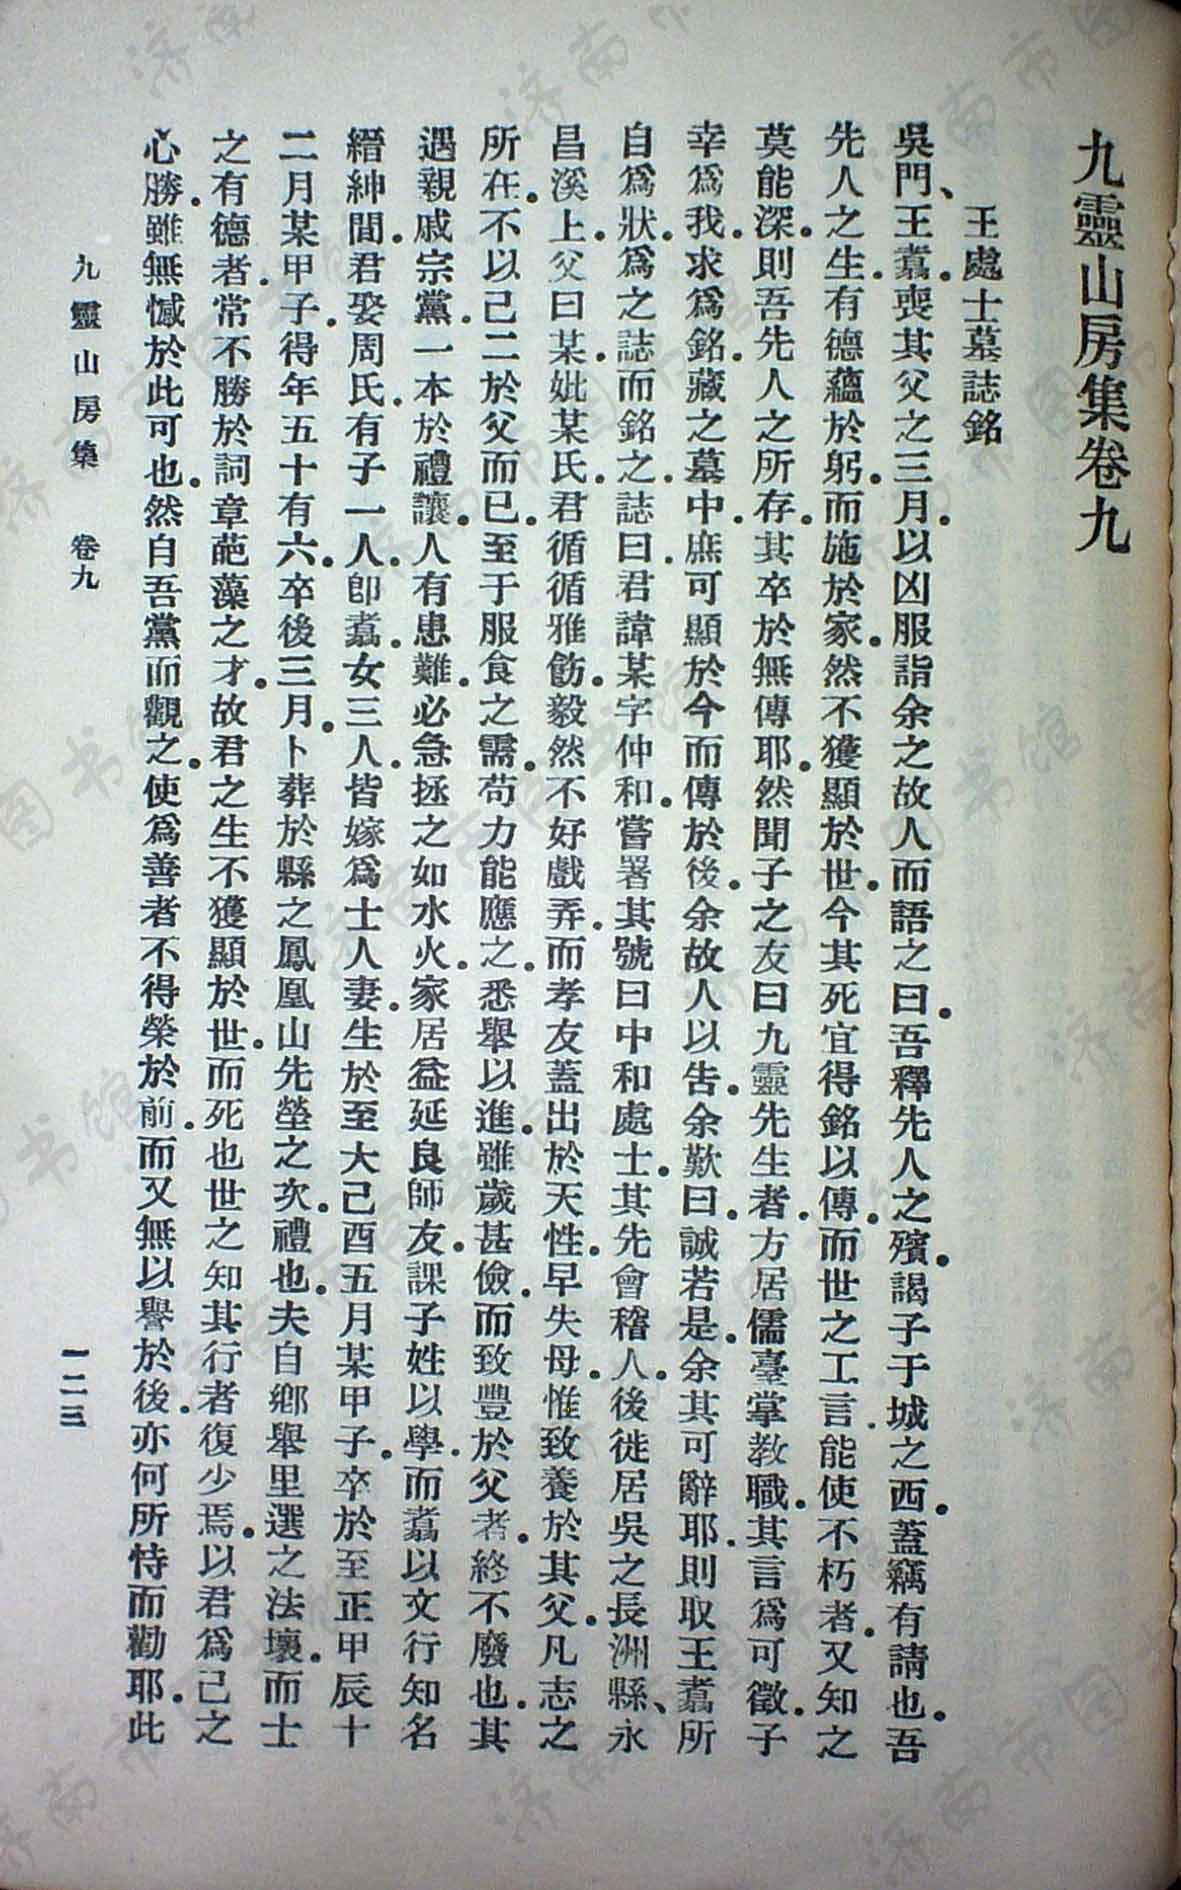 九靈山房集卷九
王處士墓誌銘
吳門、王翥喪其父之三月。以凶服詣余之故人而語之曰。吾釋先人之殯。謁子于城之西。蓋竊有請也。吾
先人之生。有德蘊於躬。而施於家。然不獲顯於世。今其死宜得銘以傳。而世之工言。能使不朽者。又知之
莫能深。則吾先人之所存。其卒於無傳耶。然聞子之友曰九靈先生者。方居儒臺掌教職。其言爲可徵。子
幸爲我。求爲銘。藏之墓中。庶可顯於今而傳於後。余故人以告。余歎曰。誠若是。余其可辭耶。則取王翥所
自爲狀。爲之誌而銘之。誌曰。君諱某字仲和。嘗署其號曰中和處士。其先會稽人。後徙居吳之長洲縣、永
昌溪上。父曰某。妣某氏。君循循雅飭。毅然不好戲弄。而孝友蓋出於天性。早失母。惟致養於其父。凡志之
所在。不以己二於父而已。至于服食之需。苟力能應之。悉舉以進。雖歲甚儉。而致豐於父者。終不廢也。其
遇親戚宗黨。一本於禮讓。人有患難。必急拯之如水火。家居益延良師友。課子姓以學。而翥以文行知名
縉紳間。君娶周氏。有子一人。卽翥。女三人。皆嫁爲士人妻。生於至大己酉五月某甲子。卒於至正甲辰十
二月某甲子。得年五十有六。卒後三月。卜葬於縣之鳳凰山先塋之次。禮也。夫自鄉舉里選之法壞。而士
之有德者。常不勝於詞章葩藻之才。故君之生不獲顯於世。而死也世之知其行者復少焉。以君爲己之
心勝。雖無憾於此可也。然自吾黨而觀之。使爲善者不得榮於前。而又無以譽於後。亦何所恃而勸耶。此
九靈山房集 卷九
一二三